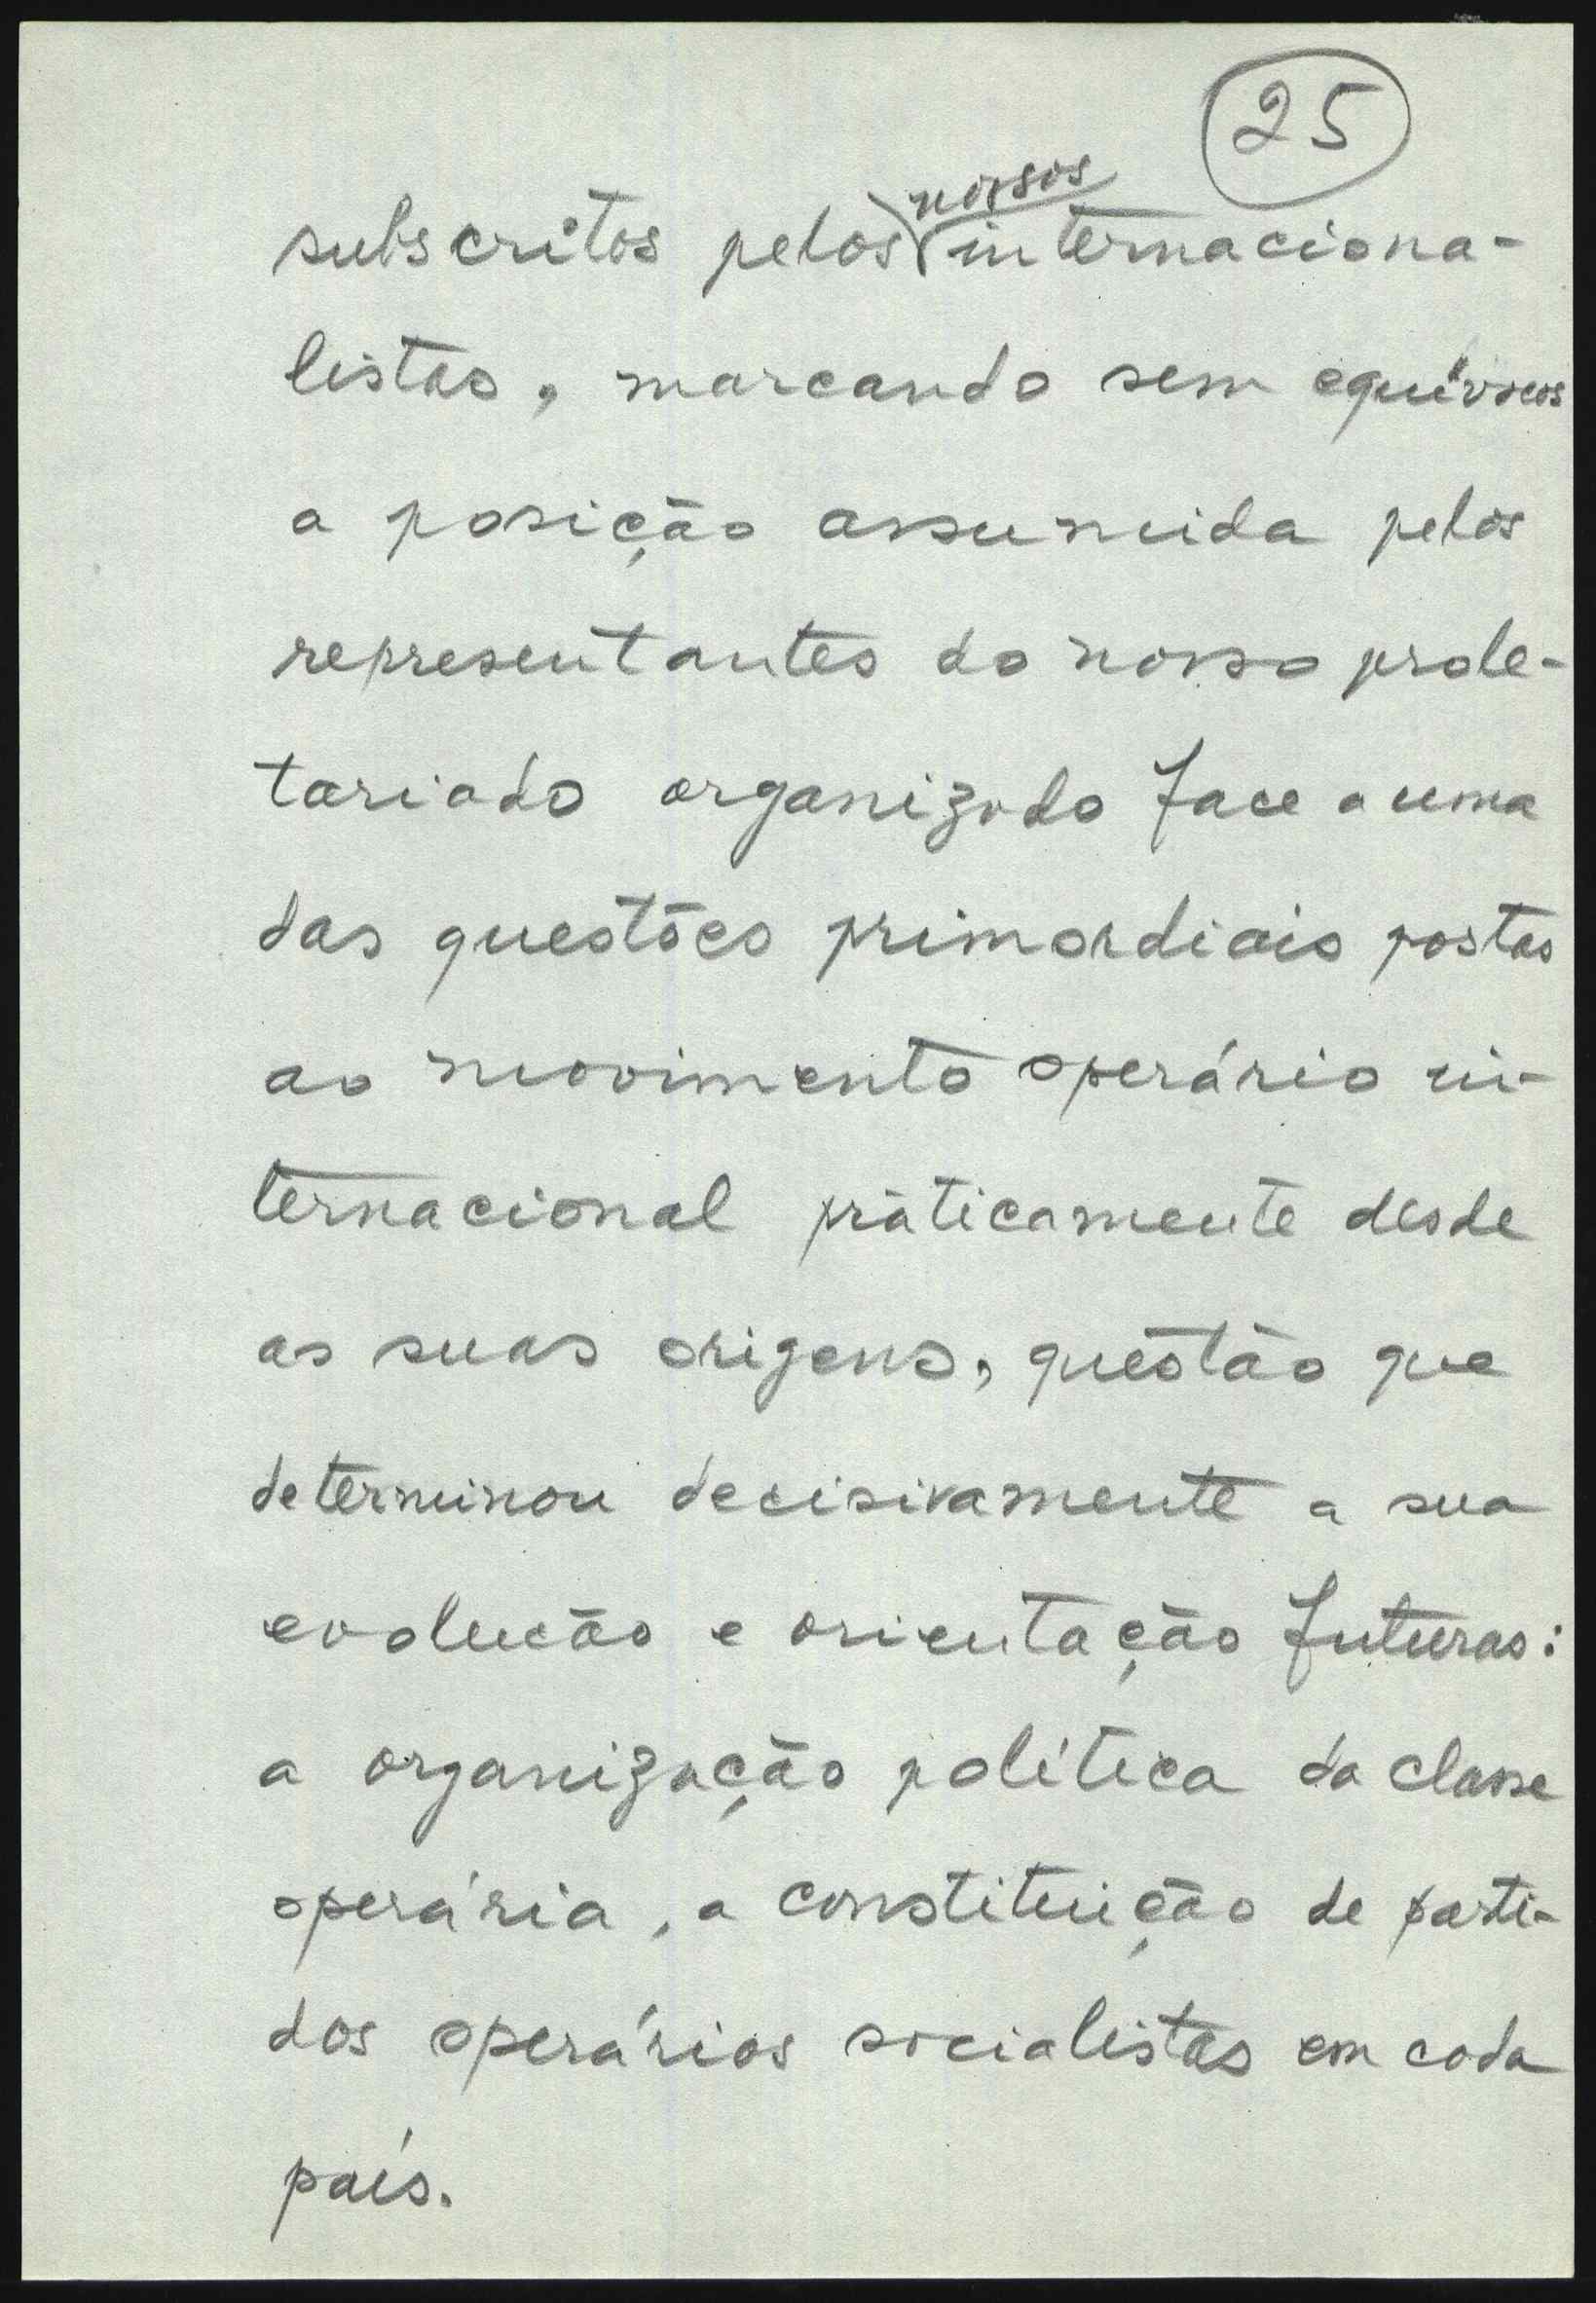 25
nossos
subscritos pelos internaciona-
listas, marcando sem equívocos
a posição assumida pelos
representantes do nosso prole-
tariado organizado face a uma
das questões primordiais postas
ao movimento operário in-
ternacional pràticamente desde
as suas origens, questão que
determinou decisivamente a sua
evolução e orientação futuras:
a organização política da classe
operária, a constituição de parti-
dos operários socialistas em cada
país.